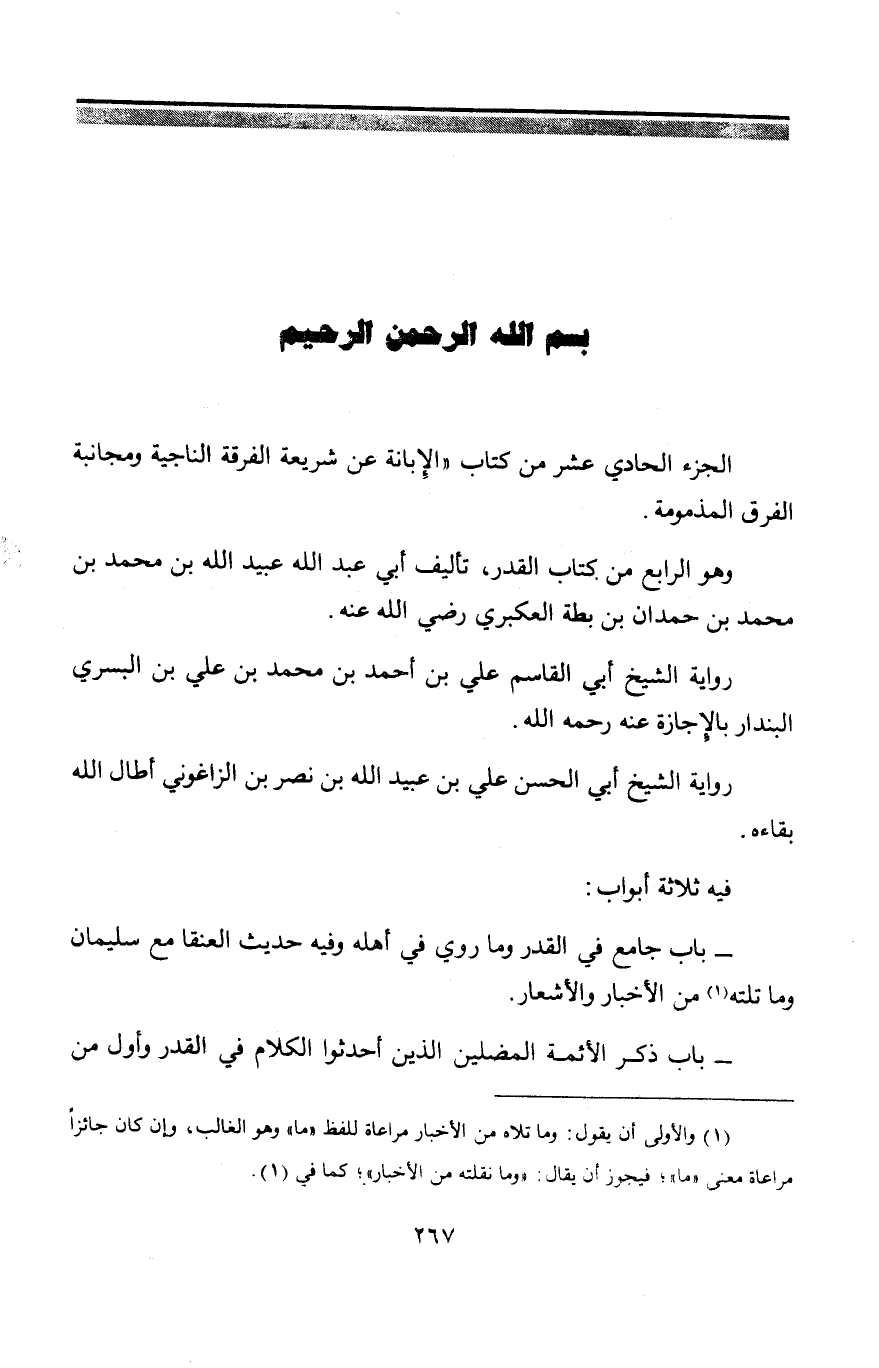 بسم الله الرحمن الرحيم
الجزء الحادي عشر من كتاب «الإبانة عن شريعة الفرقة الناجية ومجانبة
الفرق المذمومة .
وهو الرابع من كتاب القدر، تأليف أبي عبد الله عبيد الله بن محمد بن
محمد بن حمدان بن بطة العكبري رضي الله عنه .
رواية الشيخ أبي القاسم علي بن أحمد بن محمد بن علي بن البسري
البندار بالإجازة عنه رحمه الله .
رواية الشيخ أبي الحسن علي بن عبيد الله بن نصر بن الزاغوني أطال الله
بقاءه .
فيه ثلاثة أبواب :
ـ باب جامع في القدر وما روي في أهله وفيه حديث العنقا مع سليمان
وما تلته(١) من الأخبار والأشعار .
ـ باب ذكر الأئمة المضلين الذين أحدثوا الكلام في القدر وأول من
(١) والأولى أن يقول : وما تلاه من الأخبار مراعاة للفظ «ما» وهو الغالب، وإن كان جائزاً
مراعاة معنى «ما» ؛ فيجوز أن يقال : «وما نقلته من الأخبار» ؛ كما في (١) .
٢٦٧